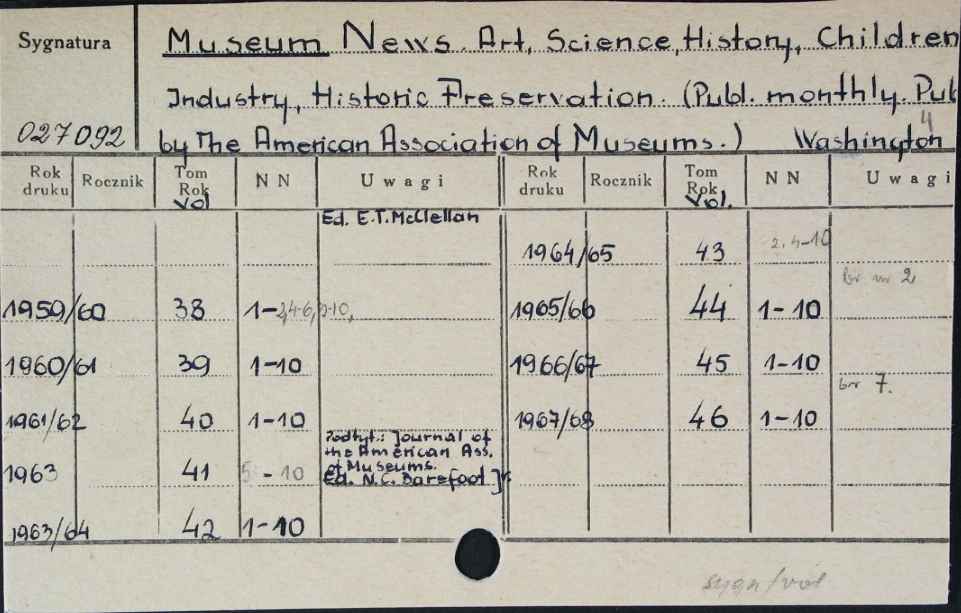 Sygnatura
027092
Museum News. Art, Science, History, Children
Industry, Historic Preservation. (Publ. monthly. Pub
by The American Association of Museums.) Washington
4
Rok druku Rocznik Tom Rok Vol N N Uwagi Rok druku Rocznik Tom Rok Vol. N N Uwagi
Ed. E.T. McClellan
1964/65 43 2, 4-10
1959/60 38 1-
1965/66 44 1-10 br nr 2
1960/61 39 1-10
1966/67 45 1-10
1961/62 40 1-10
1967/68 46 1-10 br 7.
1963 41 5 - 10 Podtyt.: Journal of
the American Ass.
of Museums.
Ed. N.C. Barefoot Jr.
1963/64 42 1-10